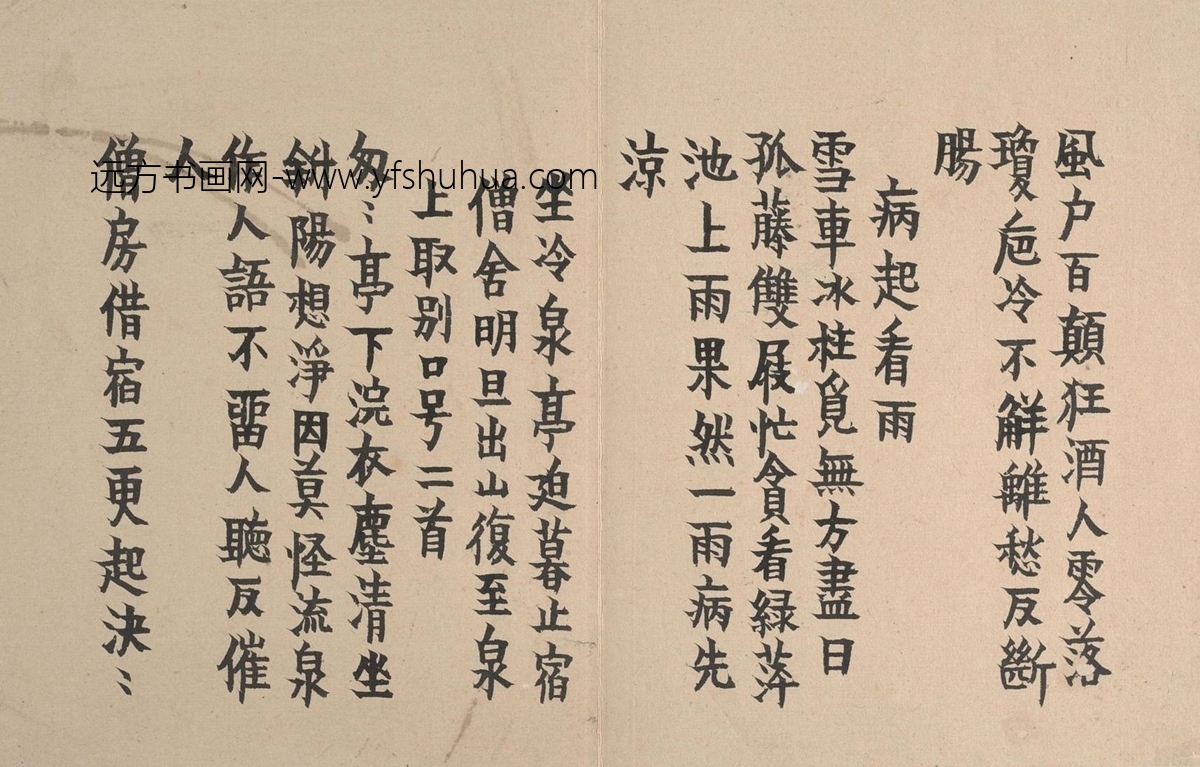 風户百顛狂酒人零落
瓊卮冷不解離愁反斷
腸
病起看雨
雪車冰柱覓無方盡日
孤藤雙屐忙貪看緑萍
池上雨果然一雨病先
涼
坐冷泉亭迫暮止宿
僧舍明旦出山復至泉
上取别口号二首
匆〻亭下浣衣塵清坐
斜陽想淨因莫怪流泉
作人語不畱人聽反催
人
僧房借宿五更起決〻
远方书画网-www.yfshuhua.com